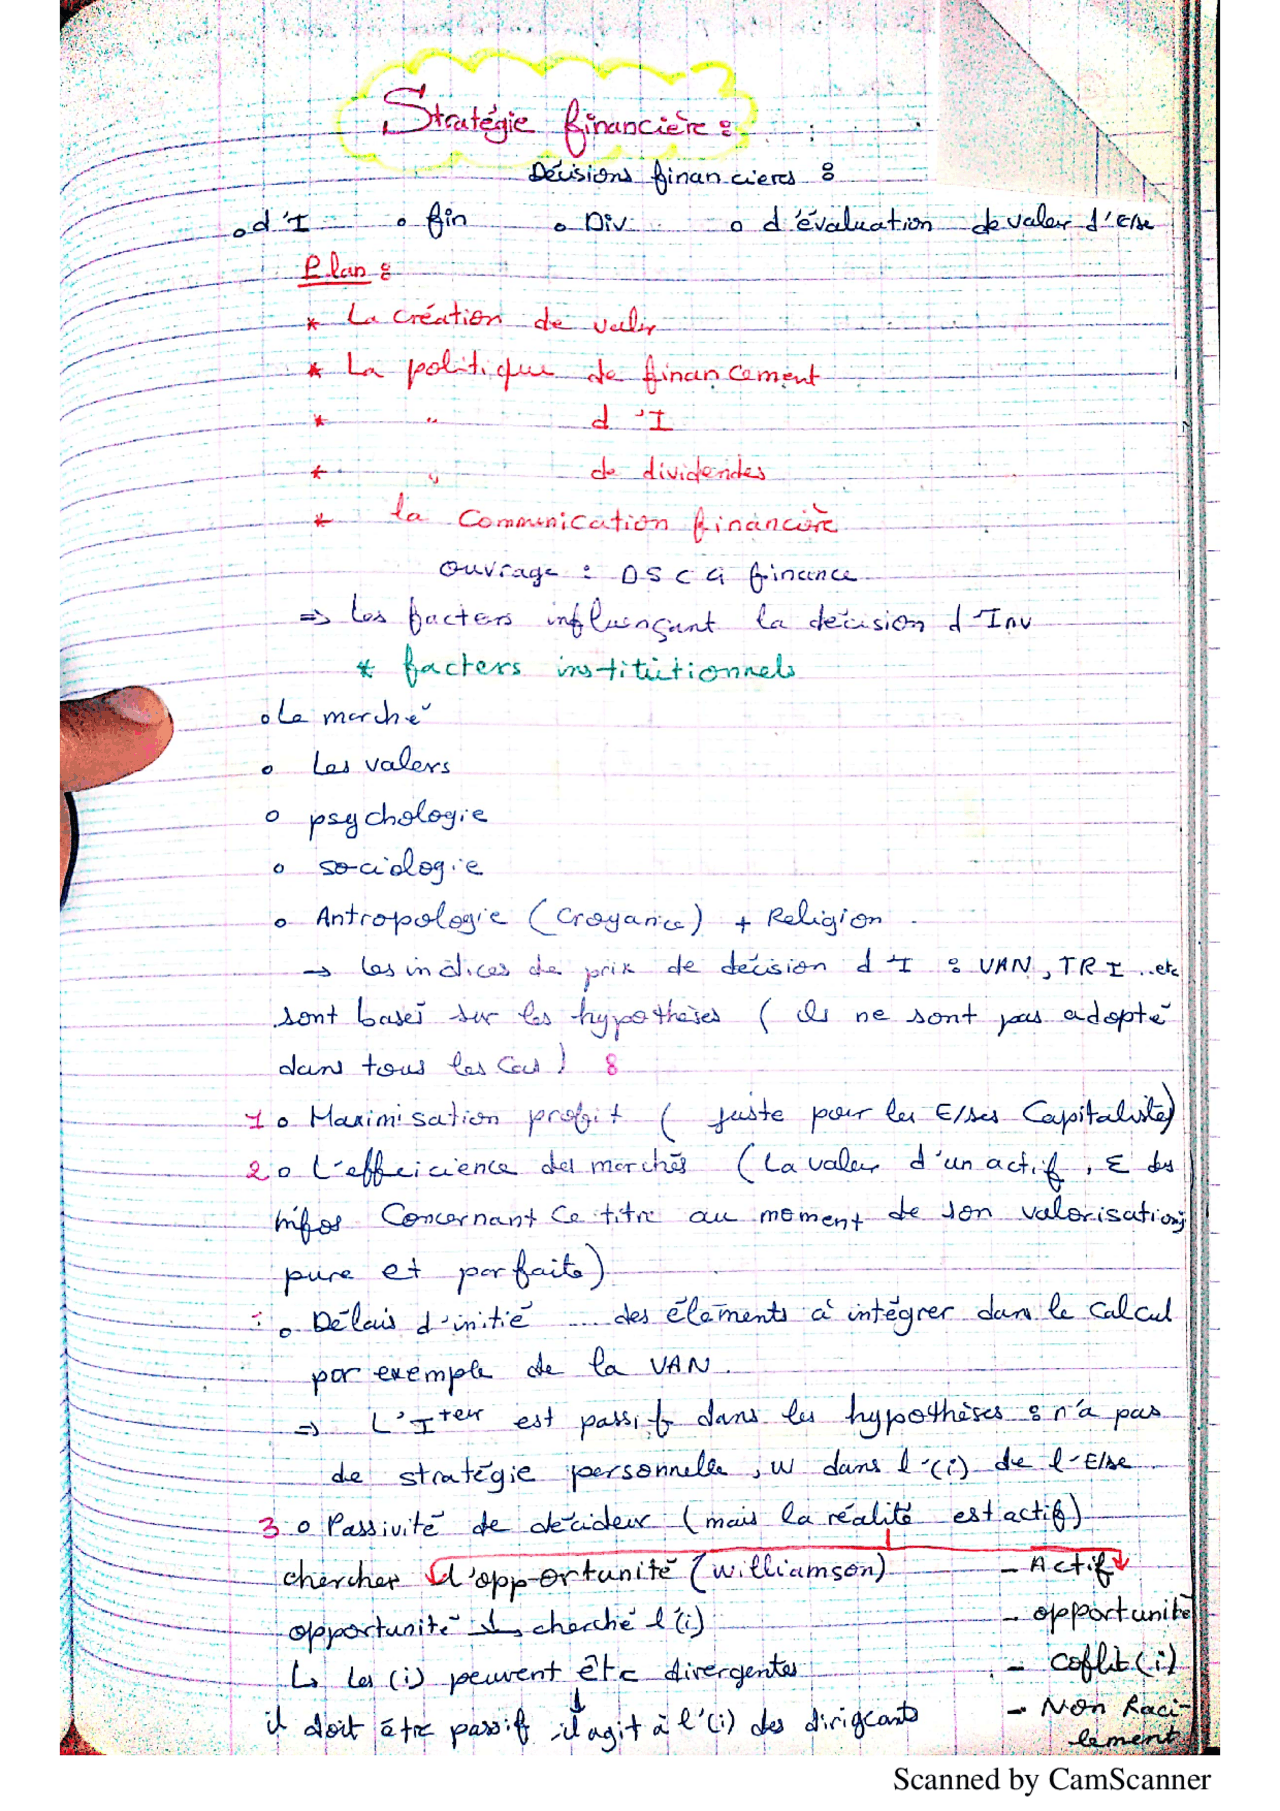 Stratégie financière :
Décisions financieres :
o d'I o fin o Div o d'évaluation de valeur d'E/se
Plan :
* La création de valeur
* La politique de financement
* " d'I
* " de dividendes
* la Communication financière
ouvrage : DSCG finance
=> Les facters influençant la décision d'Inv
* facters institutionnels
o Le marché
o Les valers
o psychologie
o sociologie
o Antropologie (Croyance) + Religion
→ les indices de prix de décision d'I : VAN, TRI ..etc
sont basés sur les hypothèses ( ils ne sont pas adopté
dans tous les Cas ) :
1 o Maximisation profit ( juste pour les E/ses Capitaliste)
2 o L'efficience des marchés (La valeur d'un actif, Σ des
infos Concernant Ce titre au moment de son valorisation;
pure et parfaite)
: o Délais d'initié ... des éléments à intégrer dans le calcul
par exemple de la VAN.
=> L'I teur est passif dans les hypothèses : n'a pas
de stratégie personnelle, w dans l'(i) de l'E/se
3 o Passivité de décideur (mais la réalité est actif)
chercher d'opportunité (williamson) - Actif
opportunité → cherché l'(i) - opportunité
↳ les (i) peuvent être divergentes - Coflit (i)
il doit être passif il agit à l'(i) des dirigeants - Non Raci-
lement
Scanned by CamScanner